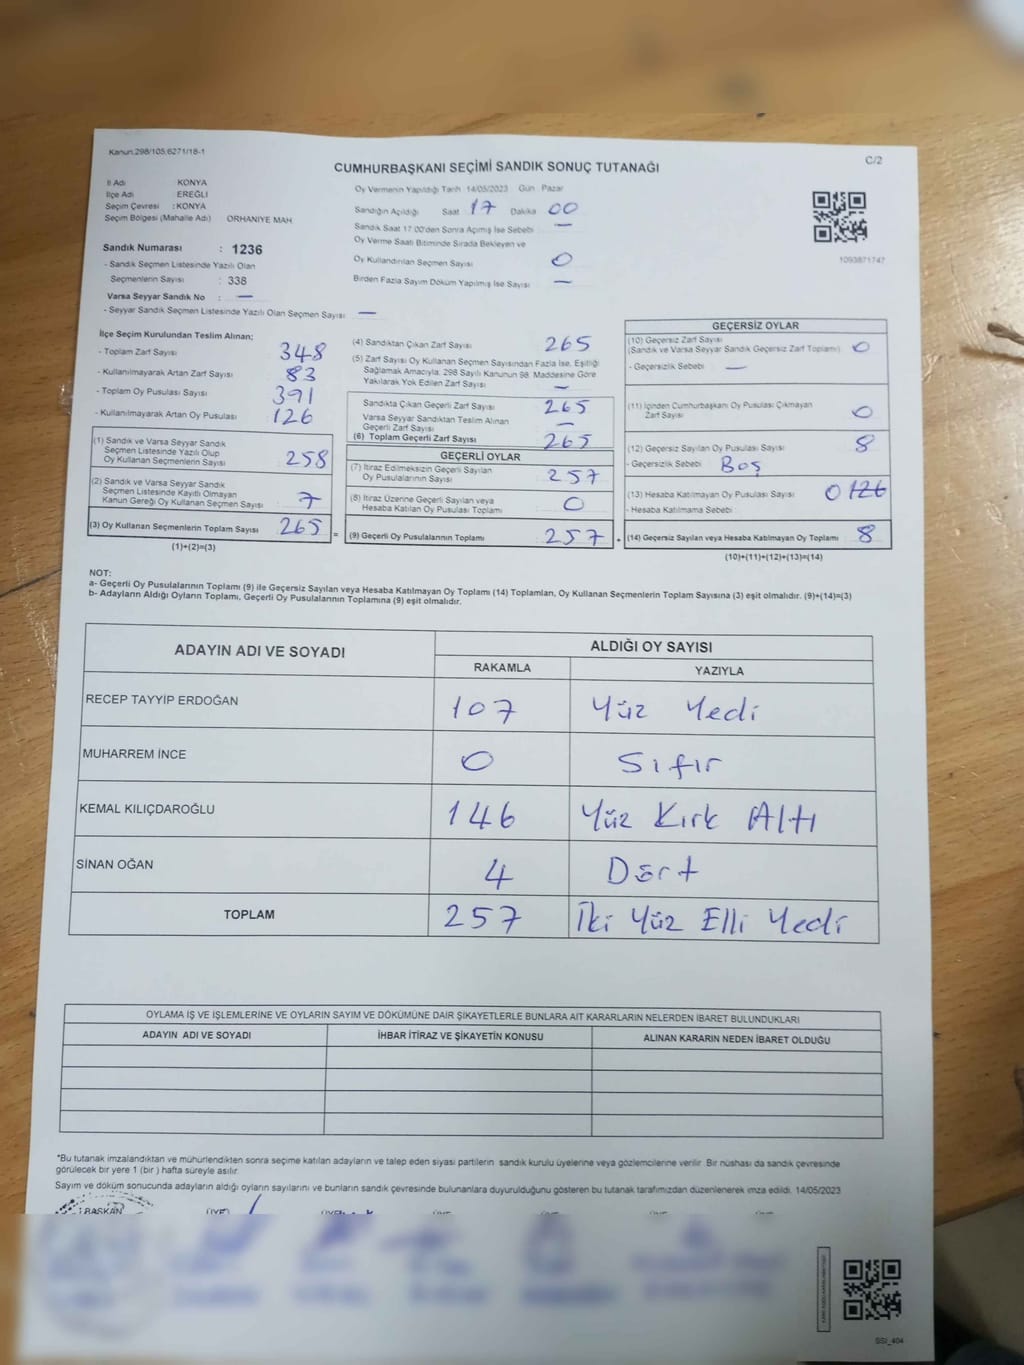 Kanun.298/105;6271/18-1
C/2
CUMHURBAŞKANI SEÇİMİ SANDIK SONUÇ TUTANAĞI
İl Adı KONYA
İlçe Adı : EREĞLİ
Seçim Çevresi : KONYA
Seçim Bölgesi (Mahalle Adı) ORHANİYE MAH
Sandık Numarası : 1236
- Sandık Seçmen Listesinde Yazılı Olan
Seçmenlerin Sayısı : 338
Varsa Seyyar Sandık No : —
- Seyyar Sandık Seçmen Listesinde Yazılı Olan Seçmen Sayısı —
Oy Vermenin Yapıldığı Tarih 14/05/2023 Gün Pazar
Sandığın Açıldığı Saat 17 Dakika 00
Sandık Saat 17:00'den Sonra Açımış İse Sebebi —
Oy Verme Saati Bitiminde Sırada Bekleyen ve
Oy Kullandırılan Seçmen Sayısı 0
Birden Fazla Sayım Döküm Yapılmış İse Sayısı —
1093871747
İlçe Seçim Kurulundan Teslim Alınan;
- Toplam Zarf Sayısı 348
- Kullanılmayarak Artan Zarf Sayısı 83
- Toplam Oy Pusulası Sayısı 391
- Kullanılmayarak Artan Oy Pusulası 126
(1) Sandık ve Varsa Seyyar Sandık
Seçmen Listesinde Yazılı Olup
Oy Kullanan Seçmenlerin Sayısı 258
(2) Sandık ve Varsa Seyyar Sandık
Seçmen Listesinde Kayıtlı Olmayan
Kanun Gereği Oy Kullanan Seçmen Sayısı 7
(3) Oy Kullanan Seçmenlerin Toplam Sayısı 265 =
(1)+(2)=(3)
(4) Sandıktan Çıkan Zarf Sayısı 265
(5) Zarf Sayısı Oy Kullanan Seçmen Sayısından Fazla İse, Eşitliği
Sağlamak Amacıyla, 298 Sayılı Kanunun 98. Maddesine Göre
Yakılarak Yok Edilen Zarf Sayısı —
Sandıkta Çıkan Geçerli Zarf Sayısı 265
Varsa Seyyar Sandıktan Teslim Alınan
Geçerli Zarf Sayısı —
(6) Toplam Geçerli Zarf Sayısı 265
GEÇERLİ OYLAR
(7) İtiraz Edilmeksizin Geçerli Sayılan
Oy Pusulalarının Sayısı 257
(8) İtiraz Üzerine Geçerli Sayılan veya
Hesaba Katılan Oy Pusulası Toplamı 0
(9) Geçerli Oy Pusulalarının Toplamı 257 +
GEÇERSİZ OYLAR
(10) Geçersiz Zarf Sayısı
(Sandık ve Varsa Seyyar Sandık Geçersiz Zarf Toplamı) 0
- Geçersizlik Sebebi —
(11) İçinden Cumhurbaşkanı Oy Pusulası Çıkmayan
Zarf Sayısı 0
(12) Geçersiz Sayılan Oy Pusulası Sayısı 8
- Geçersizlik Sebebi Boş
(13) Hesaba Katılmayan Oy Pusulası Sayısı 0 126
- Hesaba Katılmama Sebebi
(14) Geçersiz Sayılan veya Hesaba Katılmayan Oy Toplamı 8
(10)+(11)+(12)+(13)=(14)
NOT:
a- Geçerli Oy Pusulalarının Toplamı (9) ile Geçersiz Sayılan veya Hesaba Katılmayan Oy Toplamı (14) Toplamları, Oy Kullanan Seçmenlerin Toplam Sayısına (3) eşit olmalıdır. (9)+(14)=(3)
b- Adayların Aldığı Oyların Toplamı, Geçerli Oy Pusulalarının Toplamına (9) eşit olmalıdır.
ADAYIN ADI VE SOYADI
ALDIĞI OY SAYISI
RAKAMLA YAZIYLA
RECEP TAYYİP ERDOĞAN 107 Yüz Yedi
MUHARREM İNCE 0 Sıfır
KEMAL KILIÇDAROĞLU 146 Yüz Kırk Altı
SİNAN OĞAN 4 Dört
TOPLAM 257 İki Yüz Elli Yedi
OYLAMA İŞ VE İŞLEMLERİNE VE OYLARIN SAYIM VE DÖKÜMÜNE DAİR ŞİKAYETLERLE BUNLARA AİT KARARLARIN NELERDEN İBARET BULUNDUKLARI
ADAYIN ADI VE SOYADI İHBAR İTİRAZ VE ŞİKAYETİN KONUSU ALINAN KARARIN NEDEN İBARET OLDUĞU
*Bu tutanak imzalandıktan ve mühürlendikten sonra seçime katılan adayların ve talep eden siyasi partilerin sandık kurulu üyelerine veya gözlemcilerine verilir. Bir nüshası da sandık çevresinde
görülecek bir yere 1 (bir ) hafta süreyle asılır.
Sayım ve döküm sonucunda adayların aldığı oyların sayılarını ve bunların sandık çevresinde bulunanlara duyurulduğunu gösteren bu tutanak tarafımızdan düzenlenerek imza edildi. 14/05/2023
BAŞKAN
SSİ_404